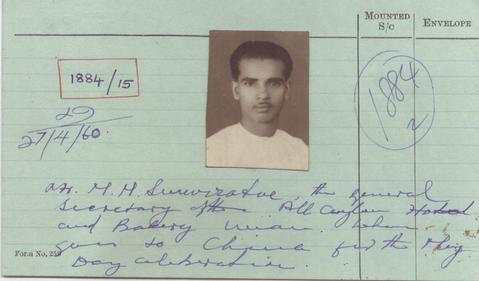 MOUNTED
S/C
ENVELOPE
1884/15
1884
2
27/4/60.
Mr. M. H. the general
Secretary of the All Ceylon Hotel
and Bakery Union. When
goes to China for the May
Day celebration.
Form No. 259